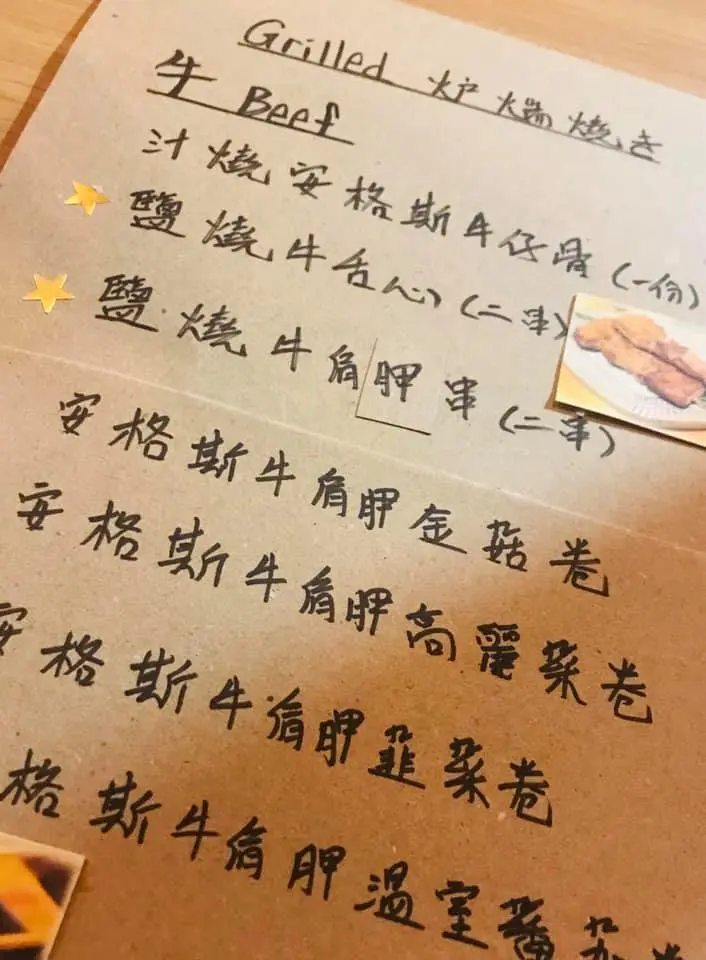 Grilled 炉端焼き
牛 Beef
汁燒安格斯牛仔骨(一份)
鹽燒牛舌心(二串)
鹽燒牛肩胛串(二串)
安格斯牛肩胛金菇卷
安格斯牛肩胛高麗菜卷
安格斯牛肩胛韮菜卷
格斯牛肩胛溫室蕃茄卷